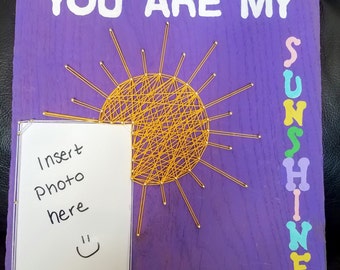 YOU ARE MY
SUNSHINE
Insert
photo
here